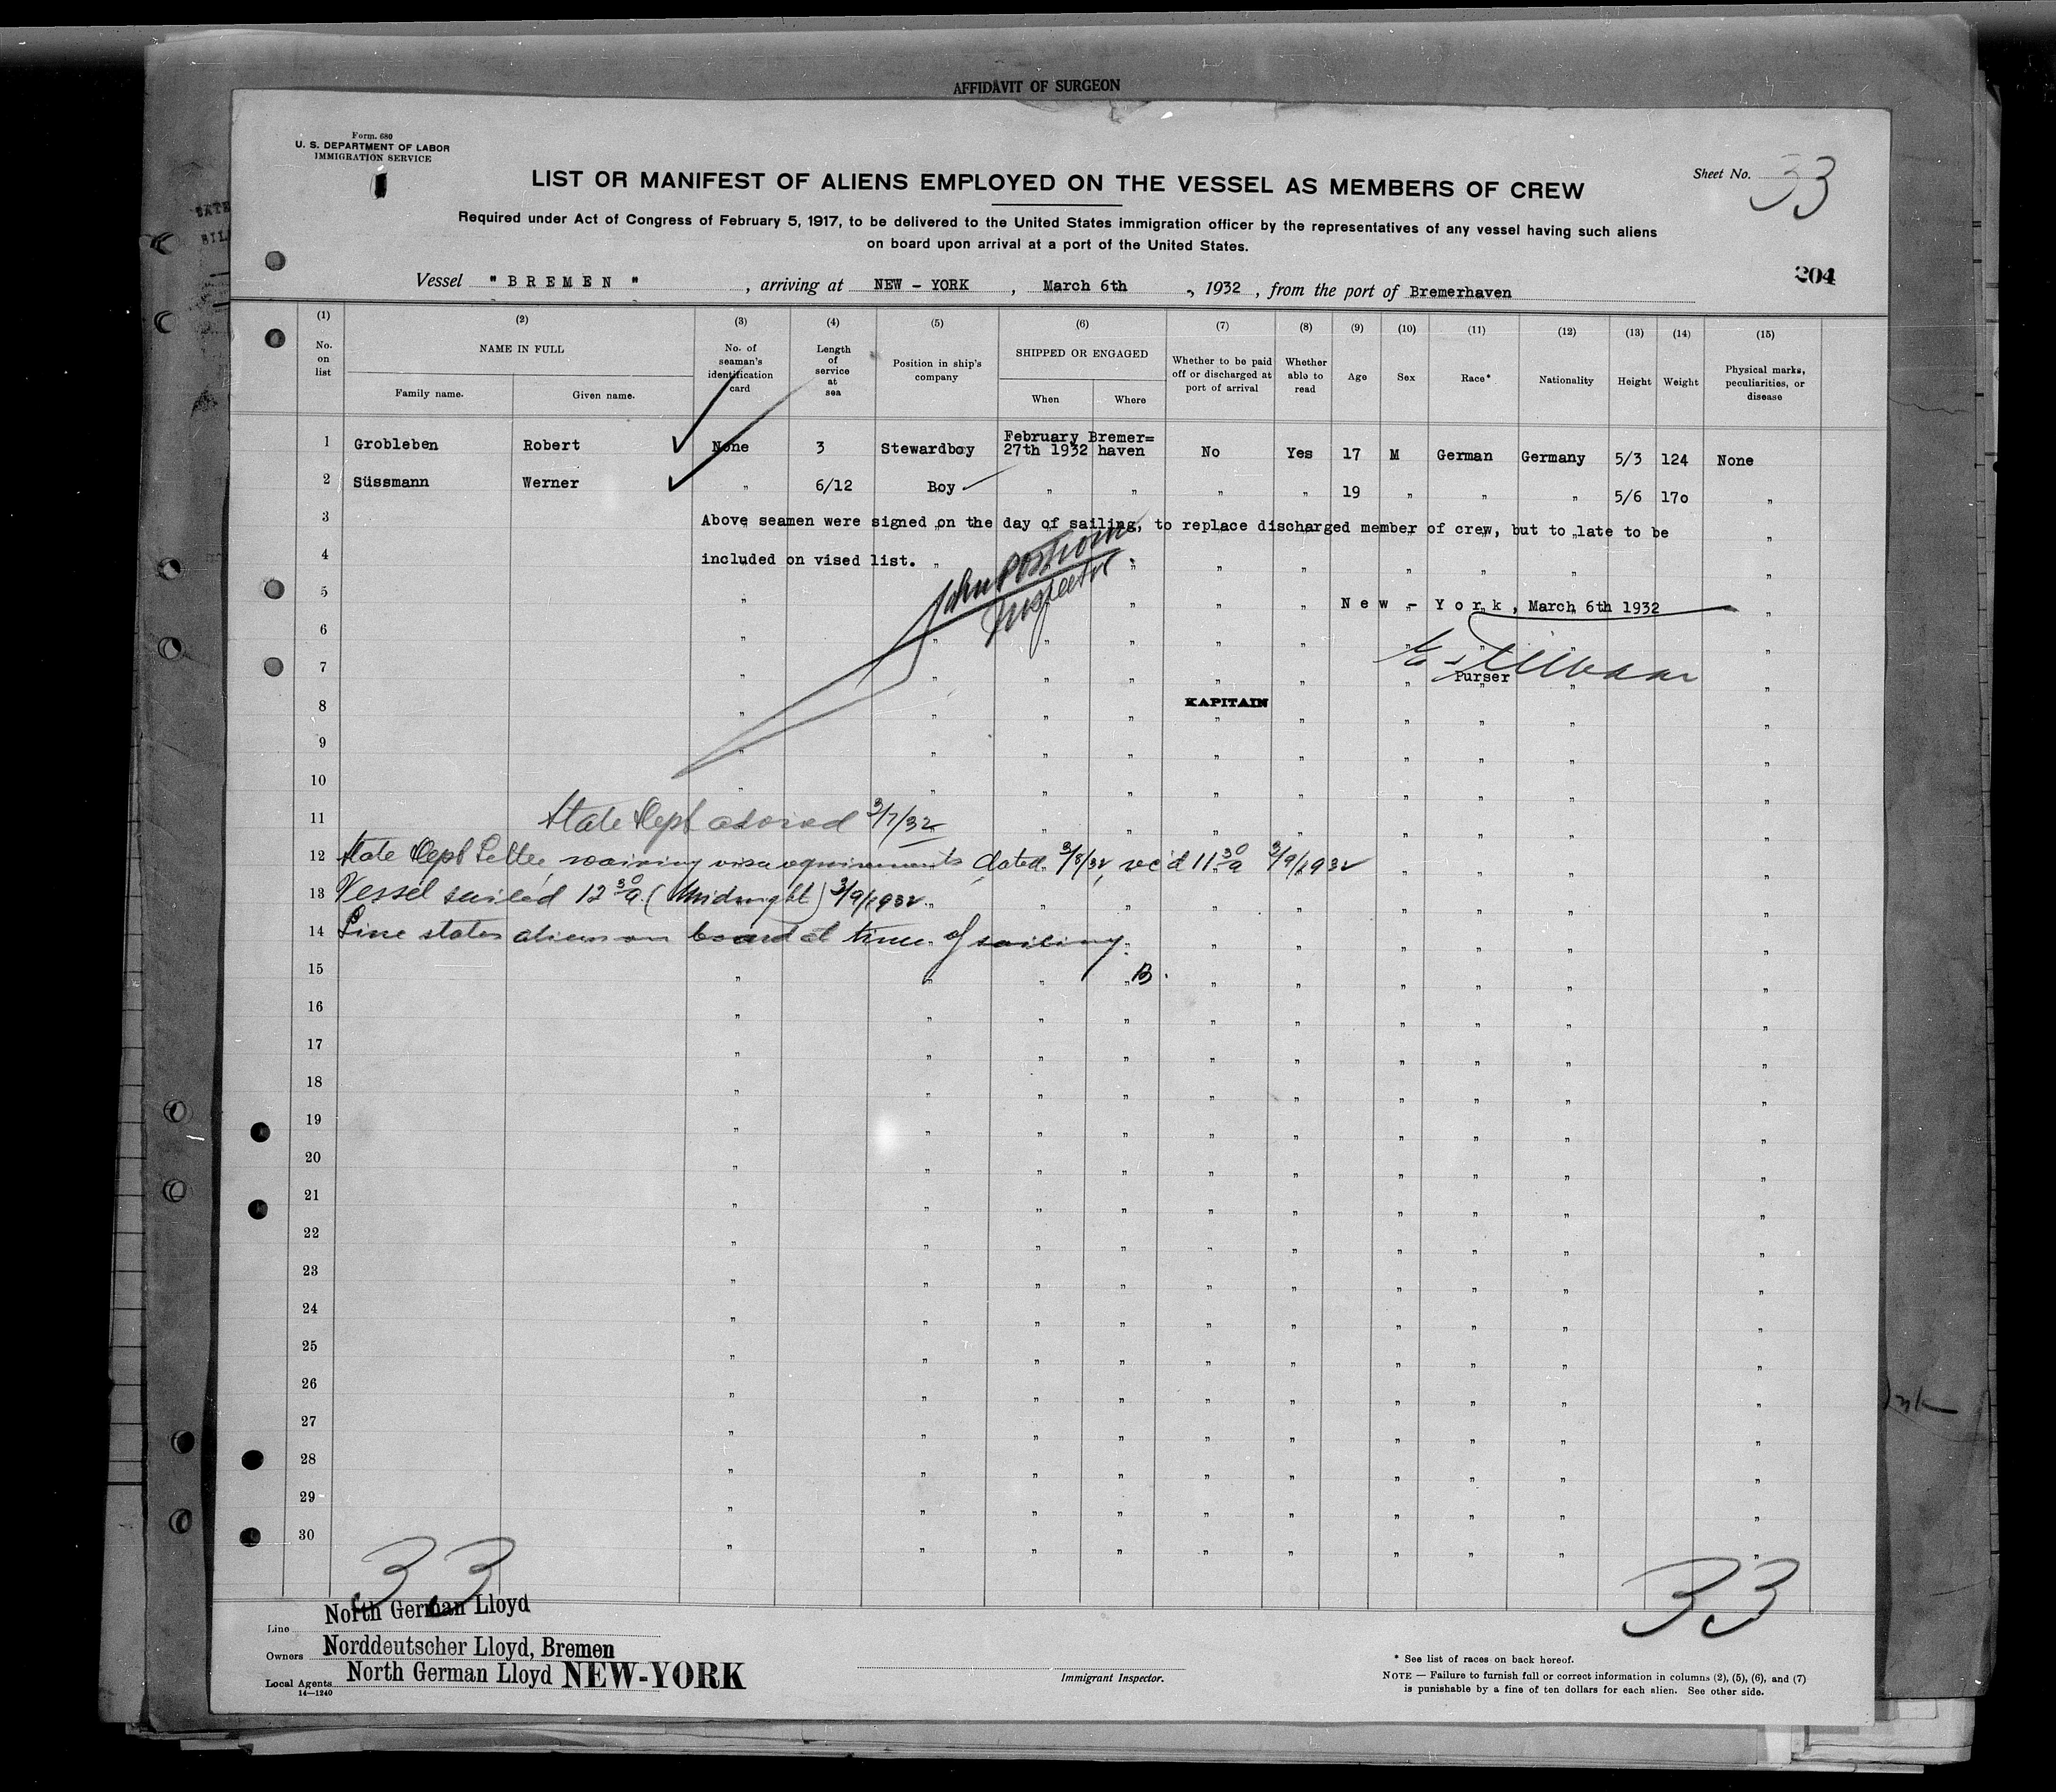 AFFIDAVIT OF SURGEON
Form. 680
U. S. DEPARTMENT OF LABOR
IMMIGRATION SERVICE
Sheet No. 33
LIST OR MANIFEST OF ALIENS EMPLOYED ON THE VESSEL AS MEMBERS OF CREW
Required under Act of Congress of February 5, 1917, to be delivered to the United States immigration officer by the representatives of any vessel having such aliens
on board upon arrival at a port of the United States.
204
Vessel "BREMEN", arriving at NEW - YORK, March 6th, 1932, from the port of Bremerhaven
(1) (2) (3) (4) (5) (6) (7) (8) (9) (10) (11) (12) (13) (14) (15)
No. on list
NAME IN FULL
Family name. Given name.
No. of seaman's identification card
Length of service at sea
Position in ship's company
SHIPPED OR ENGAGED
When Where
Whether to be paid off or discharged at port of arrival
Whether able to read
Age
Sex
Race*
Nationality
Height
Weight
Physical marks, peculiarities, or disease
1 Grobleben Robert None 3 Stewardboy February 27th 1932 Bremer=haven No Yes 17 M German Germany 5/3 124 None
2 Süssmann Werner " 6/12 Boy " " " " 19 " " " 5/6 17o "
3 Above seamen were signed on the day of sailing, to replace discharged member of crew, but to late to be
4 included on vised list.
Inspector
5 New - York, March 6th 1932
6
7 Purser
8 KAPITAIN
9
10
11 State Dept 3/7/32
12 State Dept Letter waiving visa requirements dated 3/8/32, rec'd 11 30 a 3/9/1932
13 Vessel sailed 12 30 a. (Midnight) 3/9/1932
14 Line states aliens on board at time of sailing.
15 B.
16
17
18
19
20
21
22
23
24
25
26
27
28
29
30
33 33
Line North German Lloyd
Owners Norddeutscher Lloyd, Bremen
Local Agents North German Lloyd NEW-YORK
14—1240
Immigrant Inspector.
* See list of races on back hereof.
NOTE — Failure to furnish full or correct information in columns (2), (5), (6), and (7)
is punishable by a fine of ten dollars for each alien. See other side.